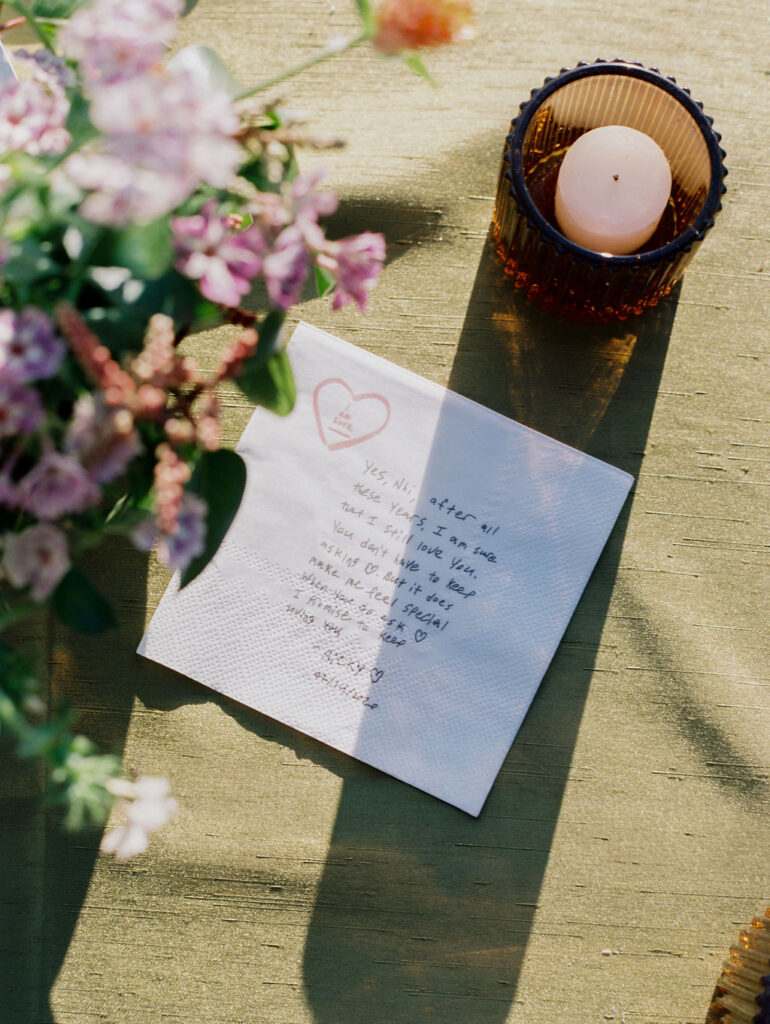 I
AM
SURE.
Yes, Nhi, after all
these years, I am sure
that I still love you.
You don't have to keep
asking ♡. But it does
make me feel special
when you do ask ♡
I promise to keep
loving you
- RICKY ♡